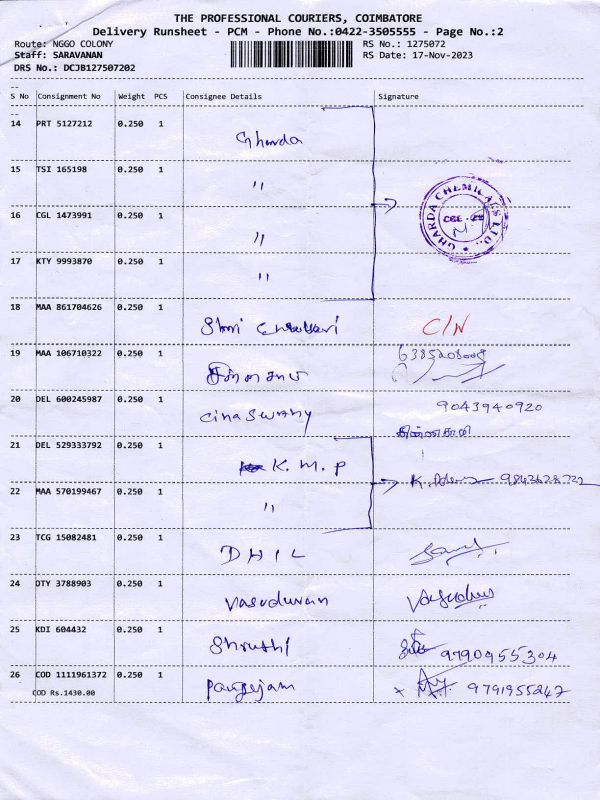 THE PROFESSIONAL COURIERS, COIMBATORE
Delivery Runsheet - PCM - Phone No.:0422-3505555 - Page No.:2
Route: NGGO COLONY RS No.: 1275072
Staff: SARAVANAN RS Date: 17-Nov-2023
DRS No.: DCJB127507202
--
S No Consignment No Weight PCS Consignee Details Signature
--
14 PRT 5127212 0.250 1 Gharda
15 TSI 165198 0.250 1 "
GHARDA CHEMICALS LTD.,
16 CGL 1473991 0.250 1 "
17 KTY 9993870 0.250 1 "
18 MAA 861704626 0.250 1 Shri C/N
19 MAA 106710322 0.250 1 சின்னசாமி
20 DEL 600245987 0.250 1 Cinaswamy 9043940920
சின்னசாமி
21 DEL 529333792 0.250 1 K. M. P
22 MAA 570199467 0.250 1 "
23 TCG 15082481 0.250 1 DHIL
24 OTY 3788903 0.250 1 Vasuduvan
25 KDI 604432 0.250 1 Shruthi 9790955304
26 COD 1111961372 0.250 1 Pangejam 9791955247
COD Rs.1430.00